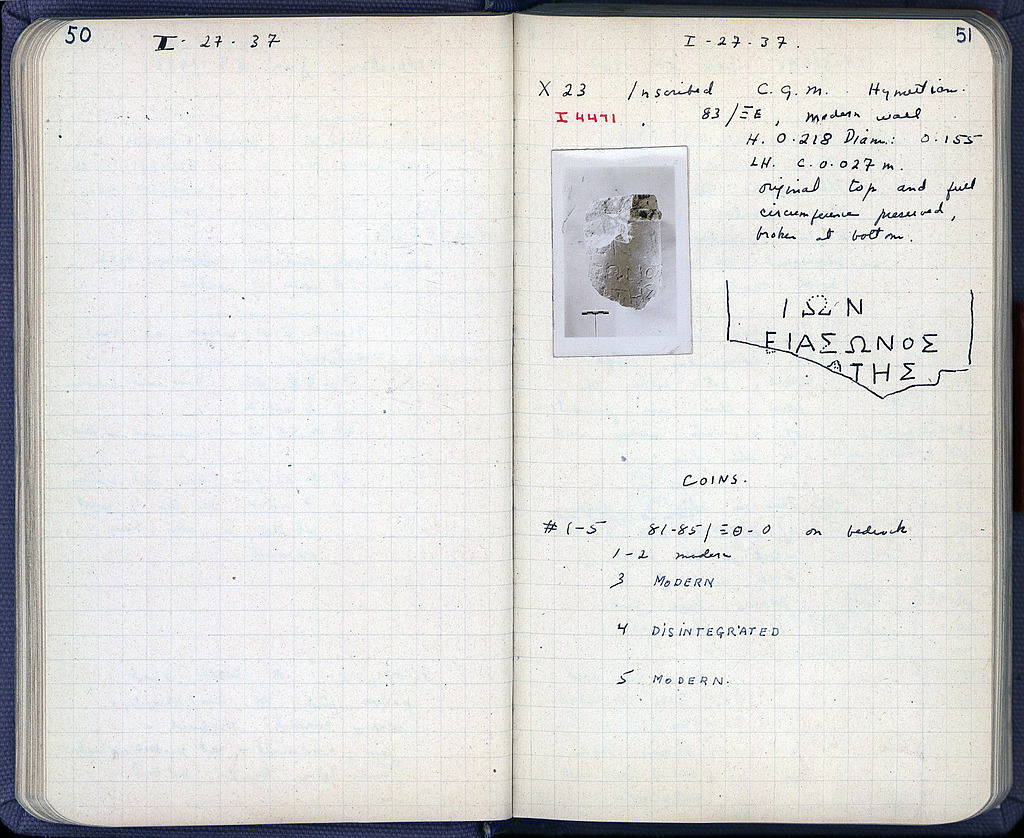 50
I - 27 - 37
51
I - 27 - 37.
X 23 Inscribed C. G. M. Hymettian.
I 4471 . 83/ΞΕ, modern wall
H. 0.218 Diam.: 0.155
LH. c. 0.027 m.
original top and full
circumference preserved,
broken at bottom.
ΙΩΝ
ΕΙΑΣΩΝΟΣ
ΑΤΗΣ
COINS.
# 1-5 81-85/ΞΘ-Ο on bedrock
1-2 modern
3 MODERN
4 DISINTEGRATED
5 MODERN.